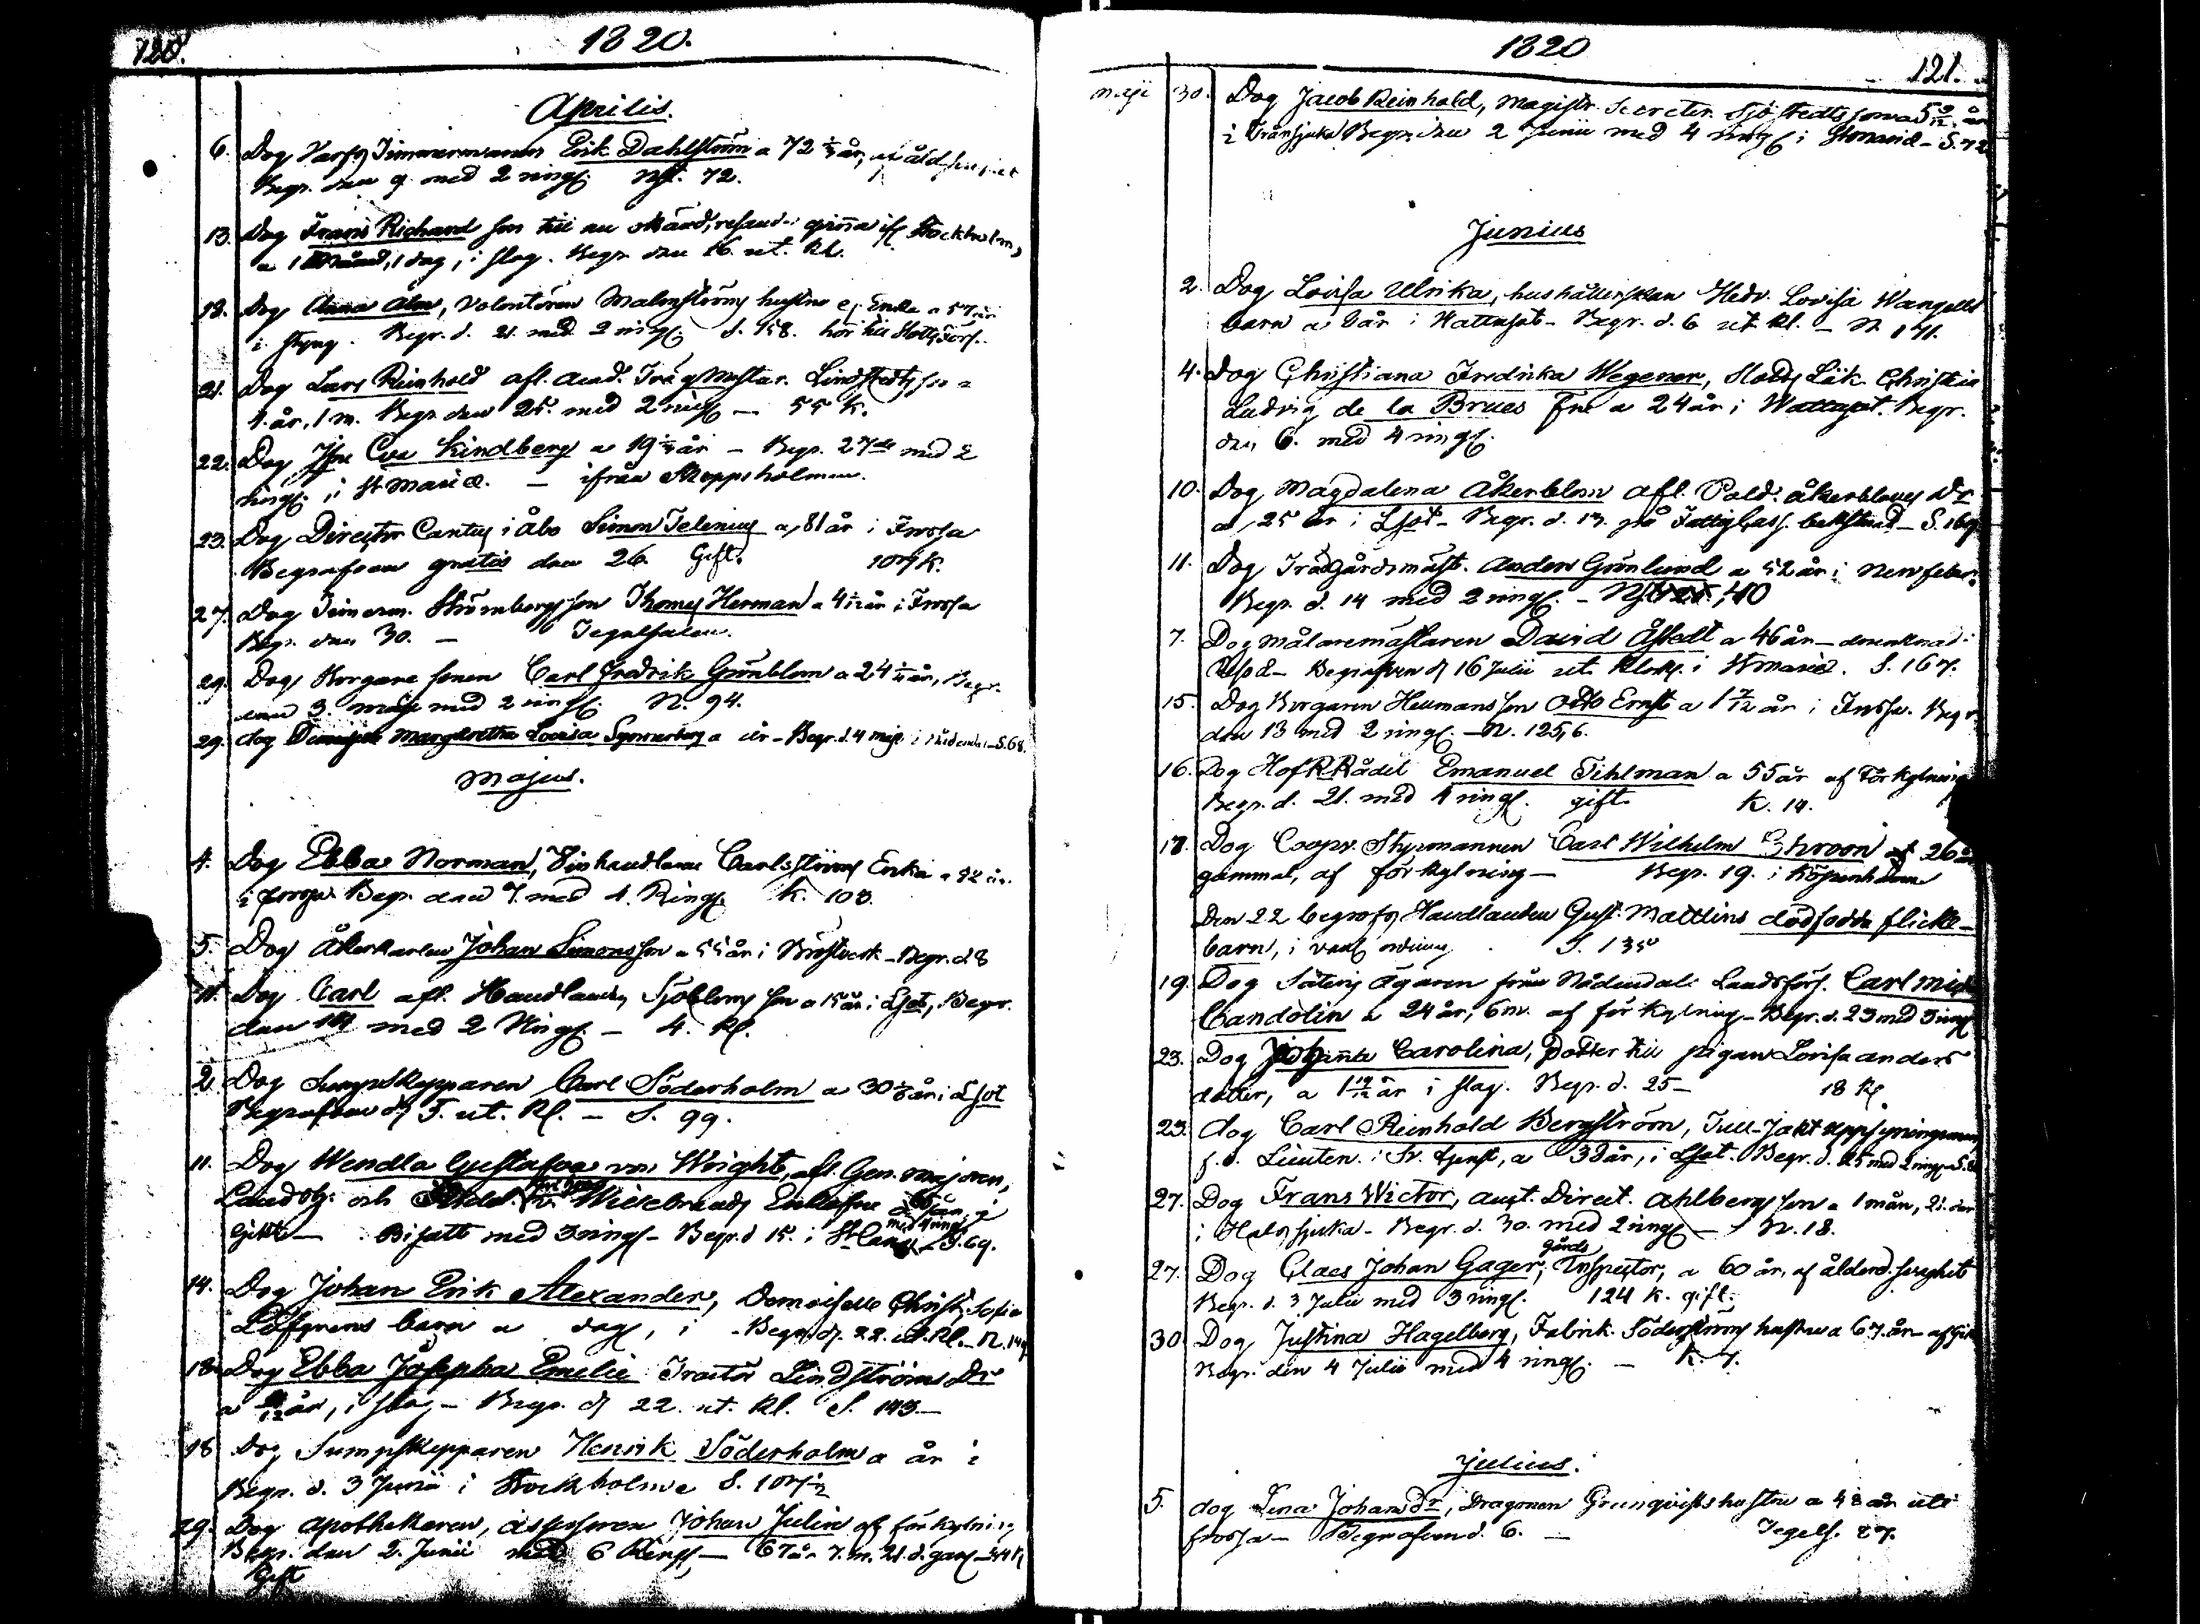 120.
1820.
Aprilis.
6. Dog Varfs Timmermannen Erik Dahlström a 72 år, af
Begr. den 9 med 2 ringn. Nst. 72.
13. Dog Frans Richard son till en okänd, resande qvinna ifr Stockholm,
a 1 Månad, 1 dag, i slag. Begr. den 16. ut. Kl.
18. Dog Anna Alm, Volontören Malmströms hustru ej Enka a 57 år
i styng. Begr. d. 21. med 2 ringn S. 158. hör till Slotts förs.
21. Dog Lars Reinhold afl. Acad. Träg Mästar. Lindstedts son a
1 år, 1 m. Begr. den 25. med 2 ringn — 55 K.
22. Dog Jfn Eva Kindberg a 19 år – Begr. 27de med 2
ringn. i St Mariæ. — ifrån Skeppsholmen.
23. Dog Director Cantus i Åbo Simon Telenius a, 81 år i Frossa
Begrafven gratis den 26. Gift. K.
27. Dog Timerm. Strömbergs son Thomas Herman a 4 år i Frossa
Begr. den 30. — Tegelsalen.
29. Dog Borgare sonen Carl Fredrik Grönblom a 24 år, Begr.
den 3. maji med 2 ringn. N. 94.
29. dog Margaretha Lovisa a år – Begr. d. 4 maji i Nådendal – S. 68.
Majus.
4. Dog Ebba Norman, Vinhandlaren Carlströms Enka a 82 år.
i frossa. Begr. den 7. med 4. Ringn. K. 103.
5. Dog Åkerkarlen Johan Simonsson a 55 år i Bröstverk – Begr. d 8
11. Dog Carl afl. Handlanden Sjöbloms son a 15 år i Lsot, Begr.
den 14 med 2 Ringn. — 4. Kl.
2. Dog Sumpskepparen Carl Söderholm a 30 år i Lsot
Begrafven d. 5. ut. Kl. — S. 99.
11. Dog Wendla Gustafva von Wright, afl. Gen. majoren,
Landshz. och v. Willebrands Enkefru
Gikt — Bisatt med 3 ringn – Begr. d 15. i S. 69.
14. Dog Johan Erik Alexander, Demoiselle Christ. Sofia
Löfgrens barn a dag, i – Begr. d. 22. ut. Kl. – N.
18. Dog Ebba Josepha Emelie Tractör Lindströms Dr
a år, i slag – Begr. d 22. ut. Kl. S. 143.—
18 Dog Sumpskepparen Henrik Söderholm a år i
Begr. d. 3 Junii i Stockholm S.
29. Dog Apothekaren, Assessoren Johan Julin af förkylning
Begr. den 2. Junii med 6 Ringn — 67 år 7. m. 21. d. gam
Gift
1820
121.
maji 30. Dog Jacob Reinhold, Magistr. Secreter. Sjöstedts son a 5 9/12 år
i Begr. den 2 Junii med 4 ringn i St Mariæ – S. 72
Junius
2. Dog Lovisa Ulrika, hushållerskan Hedv. Lovisa Wangells
barn a 2 år i Wattusot – Begr. d. 6 ut. Kl. – N 141.
4. Dog Christiana Fredrika Wegener, Slotts Läk. Christian
Ludvig de la Brues Fru a 24 år i Wattusot. Begr.
den 6. med 4 ringn.
10. Dog Magdalena Åkerblom afl. Sold. Åkerbloms Dr
a, 25 år i Lsot – Begr. d. 13. på Fattig Cass. bekostnad – S. 169
11. Dog Trädgårdsmäst. Anders Grönlund a 52 år i Nervfeber.
Begr. d. 14 med 2 ringn. – 40
7. Dog Målaremästaren David Åstedt a 46 år – drunknad i
Begrafven d 16 Julii ut. Klock. i St Mariæ. S. 167.
15. Dog Borgaren Heumans son Otto Ernst a 1 7/12 år i Frossa. Begr.
den 13 med 2 ringn. – N. 125,6.
16. Dog Hof R Rådet Emanuel Tihlman a 55 år af Förkylning
Begr. d. 21. med 4 ringn. gift K. 14.
18. Dog Coopv. Styrmannen Carl Wilhelm af 26 år
gammal, af förkylning — Begr. 19. i Köpenhamn
Den 22 begrofs Handlanden Gust. Mattlins dödfödda flicke-
barn, i vanl. ordning. S. 135
19. Dog Säteris ägaren från Nådendals Landsförs. Carl Mich
Candolin a 24 år, 6 m. af förkylning – Begr. d. 23 med 3 ringn
23. Dog Johanna Carolina, Dotter till pigan Lovisa Anders
dotter, a 1 10/12 år i slag. Begr. d. 25 – 18 Kl
23. dog Carl Reinhold Bergström, Tull-Jakt uppsyningsman,
f. d. Lieuten. i Sv. tjenst, a 38 år, i Lsot. Begr. d. 25 med 2 ringn – S.
27. Dog Frans Victor, Aug.t Direct. Ahlbergs son a 1 mån, 21. dar
i Halssjuka – Begr. d. 30. med 2 ringn — N. 18.
27. Dog Claes Johan Gager, gårds Inspector, a 60 år, af ålderd. svaghet
Begr. d. 3 Julii med 3 ringn. 124 K. gift.
30 Dog Justina Hagelberg, Fabrik. Söderströms hustru a 67. år – af Gikt
Begr. den 4 Julii med 4 ringn. — K. 7.
Julius.
5. dog Lena Johans Dr, Dragonen Grönqvists hustru a 48 år uti
frossa – Begrafven d. 6. — Tegels. 27.